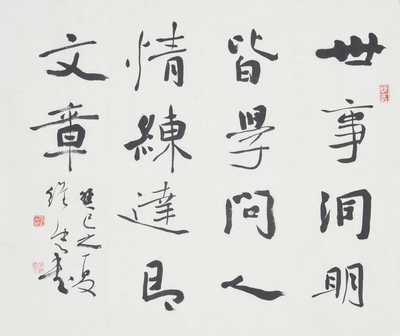 世事洞明
皆學問人
情練達即
文章
癸巳之夏